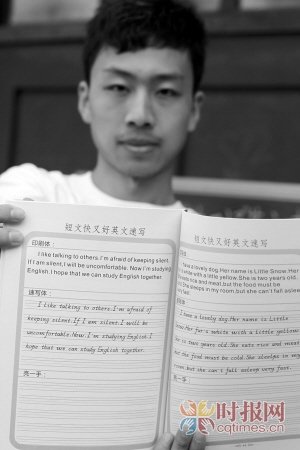 短文快又好英文速写
印刷体：
I like talking to others.I'm afraid of keeping silent.
If I am silent,I will be uncomfortable. Now I'm studying
English.I hope that we can study English together.
速写体：
I like talking to others.I'm afraid of
keeping silent.If I am silent.I will be
uncomfortable.Now.I'm studying English.I
hope that we can study English together.
亮一手：
短文快又好英文速写
have a lovely dog.Her name is Little Snow.Her
white with a little yellow.She is two years old.
and meat,but the food must be
She sleeps in my room.but she can't fall asleep
I have a lovely dog.Her name is Little
Snow.Her fur is white with a little yellow.
She is two years old.She eats rice and meat
but the food must be cold.She sleeps in my
room.but she can't fall asleep very fast.
亮一手：
时报网
cqtimes.cn